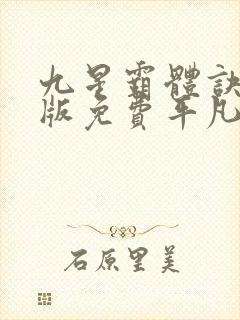 九星霸體訣
版免費平凡
石原里美